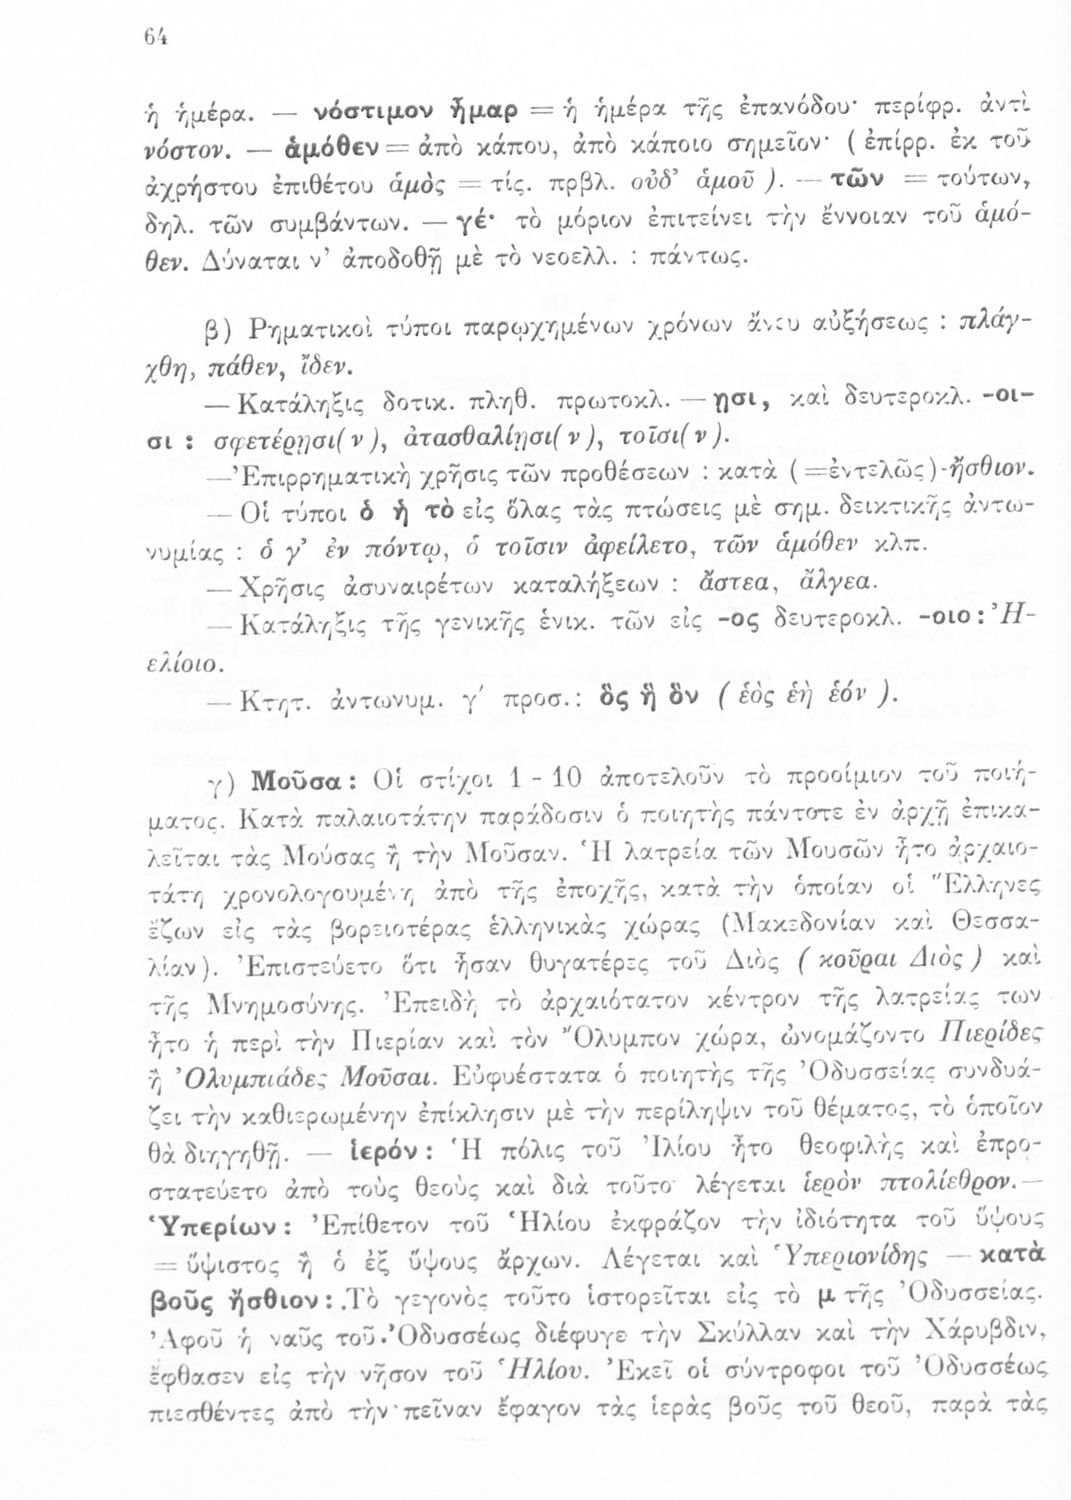 64
ἡ ἡμέρα. — νόστιμον ἦμαρ = ἡ ἡμέρα τῆς ἐπανόδου· περίφρ. ἀντὶ
νόστον. — ἁμόθεν = ἀπὸ κάπου, ἀπὸ κάποιο σημεῖον· (ἐπίρρ. ἐκ τοῦ
ἀχρήστου ἐπιθέτου ἁμὸς = τίς. πρβλ. οὐδ’ ἁμοῦ). — τῶν = τούτων,
δηλ. τῶν συμβάντων. — γέ· τὸ μόριον ἐπιτείνει τὴν ἔννοιαν τοῦ ἁμό-
θεν. Δύναται ν’ ἀποδοθῇ μὲ τὸ νεοελλ. : πάντως.
β) Ρηματικοὶ τύποι παρῳχημένων χρόνων ἄνευ αὐξήσεως : πλάγ-
χθη, πάθεν, ἴδεν.
— Κατάληξις δοτικ. πληθ. πρωτοκλ. — ῃσι, καὶ δευτεροκλ. -οι-
σι : σφετέρῃσι(ν), ἀτασθαλίῃσι(ν), τοῖσι(ν).
—Ἐπιρρηματικὴ χρῆσις τῶν προθέσεων : κατὰ (=ἐντελῶς)-ἤσθιον.
— Οἱ τύποι ὁ ἡ τὸ εἰς ὅλας τὰς πτώσεις μὲ σημ. δεικτικῆς ἀντω-
νυμίας : ὁ γ’ ἐν πόντῳ, ὁ τοῖσιν ἀφείλετο, τῶν ἁμόθεν κλπ.
— Χρῆσις ἀσυναιρέτων καταλήξεων : ἄστεα, ἄλγεα.
— Κατάληξις τῆς γενικῆς ἑνικ. τῶν εἰς -ος δευτεροκλ. -οιο: Ἠ-
ελίοιο.
— Κτητ. ἀντωνυμ. γ΄ προσ.: ὃς ἣ ὃν (ἑὸς ἑὴ ἑόν).
γ) Μοῦσα: Οἱ στίχοι 1 - 10 ἀποτελοῦν τὸ προοίμιον τοῦ ποιή-
ματος. Κατὰ παλαιοτάτην παράδοσιν ὁ ποιητὴς πάντοτε ἐν ἀρχῇ ἐπικα-
λεῖται τὰς Μούσας ἢ τὴν Μοῦσαν. Ἡ λατρεία τῶν Μουσῶν ἦτο ἀρχαιο-
τάτη χρονολογουμένη ἀπὸ τῆς ἐποχῆς, κατὰ τὴν ὁποίαν οἱ Ἕλληνες
ἔζων εἰς τὰς βορειοτέρας ἑλληνικὰς χώρας (Μακεδονίαν καὶ Θεσσα-
λίαν). Ἐπιστεύετο ὅτι ἦσαν θυγατέρες τοῦ Διὸς (κοῦραι Διὸς) καὶ
τῆς Μνημοσύνης. Ἐπειδὴ τὸ ἀρχαιότατον κέντρον τῆς λατρείας των
ἦτο ἡ περὶ τὴν Πιερίαν καὶ τὸν Ὄλυμπον χώρα, ὠνομάζοντο Πιερίδες
ἢ Ὀλυμπιάδες Μοῦσαι. Εὐφυέστατα ὁ ποιητὴς τῆς Ὀδυσσείας συνδυά-
ζει τὴν καθιερωμένην ἐπίκλησιν μὲ τὴν περίληψιν τοῦ θέματος, τὸ ὁποῖον
θὰ διηγηθῇ. — ἱερόν: Ἡ πόλις τοῦ Ἰλίου ἦτο θεοφιλὴς καὶ ἐπρο-
στατεύετο ἀπὸ τοὺς θεοὺς καὶ διὰ τοῦτο λέγεται ἱερὸν πτολίεθρον.—
Ὑπερίων: Ἐπίθετον τοῦ Ἡλίου ἐκφράζον τὴν ἰδιότητα τοῦ ὕψους
= ὕψιστος ἢ ὁ ἐξ ὕψους ἄρχων. Λέγεται καὶ Ὑπεριονίδης — κατὰ
βοῦς ἤσθιον: Τὸ γεγονὸς τοῦτο ἱστορεῖται εἰς τὸ μ τῆς Ὀδυσσείας.
Ἀφοῦ ἡ ναῦς τοῦ Ὀδυσσέως διέφυγε τὴν Σκύλλαν καὶ τὴν Χάρυβδιν,
ἔφθασεν εἰς τὴν νῆσον τοῦ Ἡλίου. Ἐκεῖ οἱ σύντροφοι τοῦ Ὀδυσσέως
πιεσθέντες ἀπὸ τὴν πεῖναν ἔφαγον τὰς ἱερὰς βοῦς τοῦ θεοῦ, παρὰ τὰς